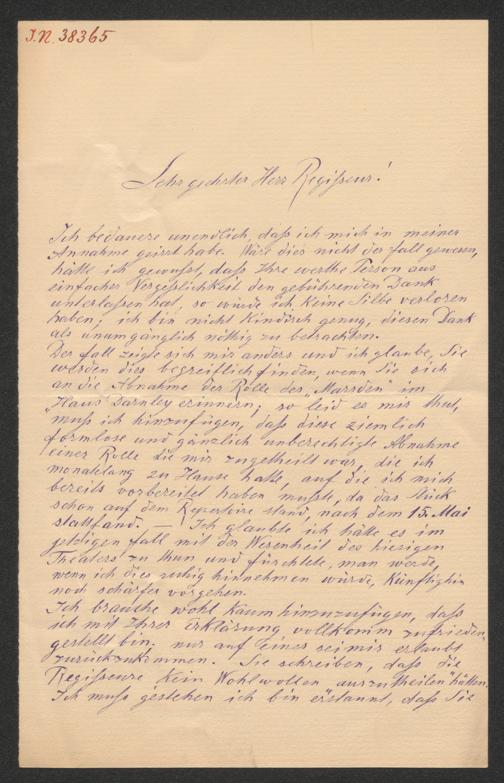 I.N. 38365
Sehr geehrter Herr Regisseur!
Ich bedauere unendlich, daß ich mich in meiner
Annahme geirrt habe. Wäre dies nicht der fall gewesen,
hätte ich gewusst, daß Ihre werthe Person aus
einfacher Vergesslichkeit den gebührenden Dank
unterlassen hat, so würde ich keine Silbe verloren
haben, ich bin nicht kindisch genug, diesen Dank
als unumgänglich nöthig zu betrachten.
Der fall zeigte sich mir anders und ich glaube, Sie
werden dies begreiflich finden, wenn Sie sich
an die Abnahme der Rolle des „Marsden" im
„Haus Darnley erinnern; so leid es mir thut,
muß ich hinzufügen, daß diese ziemlich
formlose und gänzlich unberechtigte Abnahme
einer Rolle die mir zugetheilt war, die ich
monatelang zu Hause hatte, auf die ich mich
bereits vorbereitet haben mußte, da das Stück
schon auf dem Repertoire stand, nach dem 15. Mai
stattfand. — Ich glaubte ich hätte es im
jetzigen fall mit der Wesenheit des hiesigen
Theaters zu thun und fürchtete, man werde,
wenn ich dies ruhig hinnehmen würde, künftighin
noch schärfer vorgehen.
Ich brauche wohl kaum hinzuzufügen, daß
ich mit Ihrer Erklärung vollkomm zufrieden
gestellt bin. nur auf Eines sei mir erlaubt
zurückzukommen. Sie schreiben, daß die
Regisseure kein Wohlwollen auszutheilen hätten.
Ich muß gestehen ich bin erstaunt, daß Sie